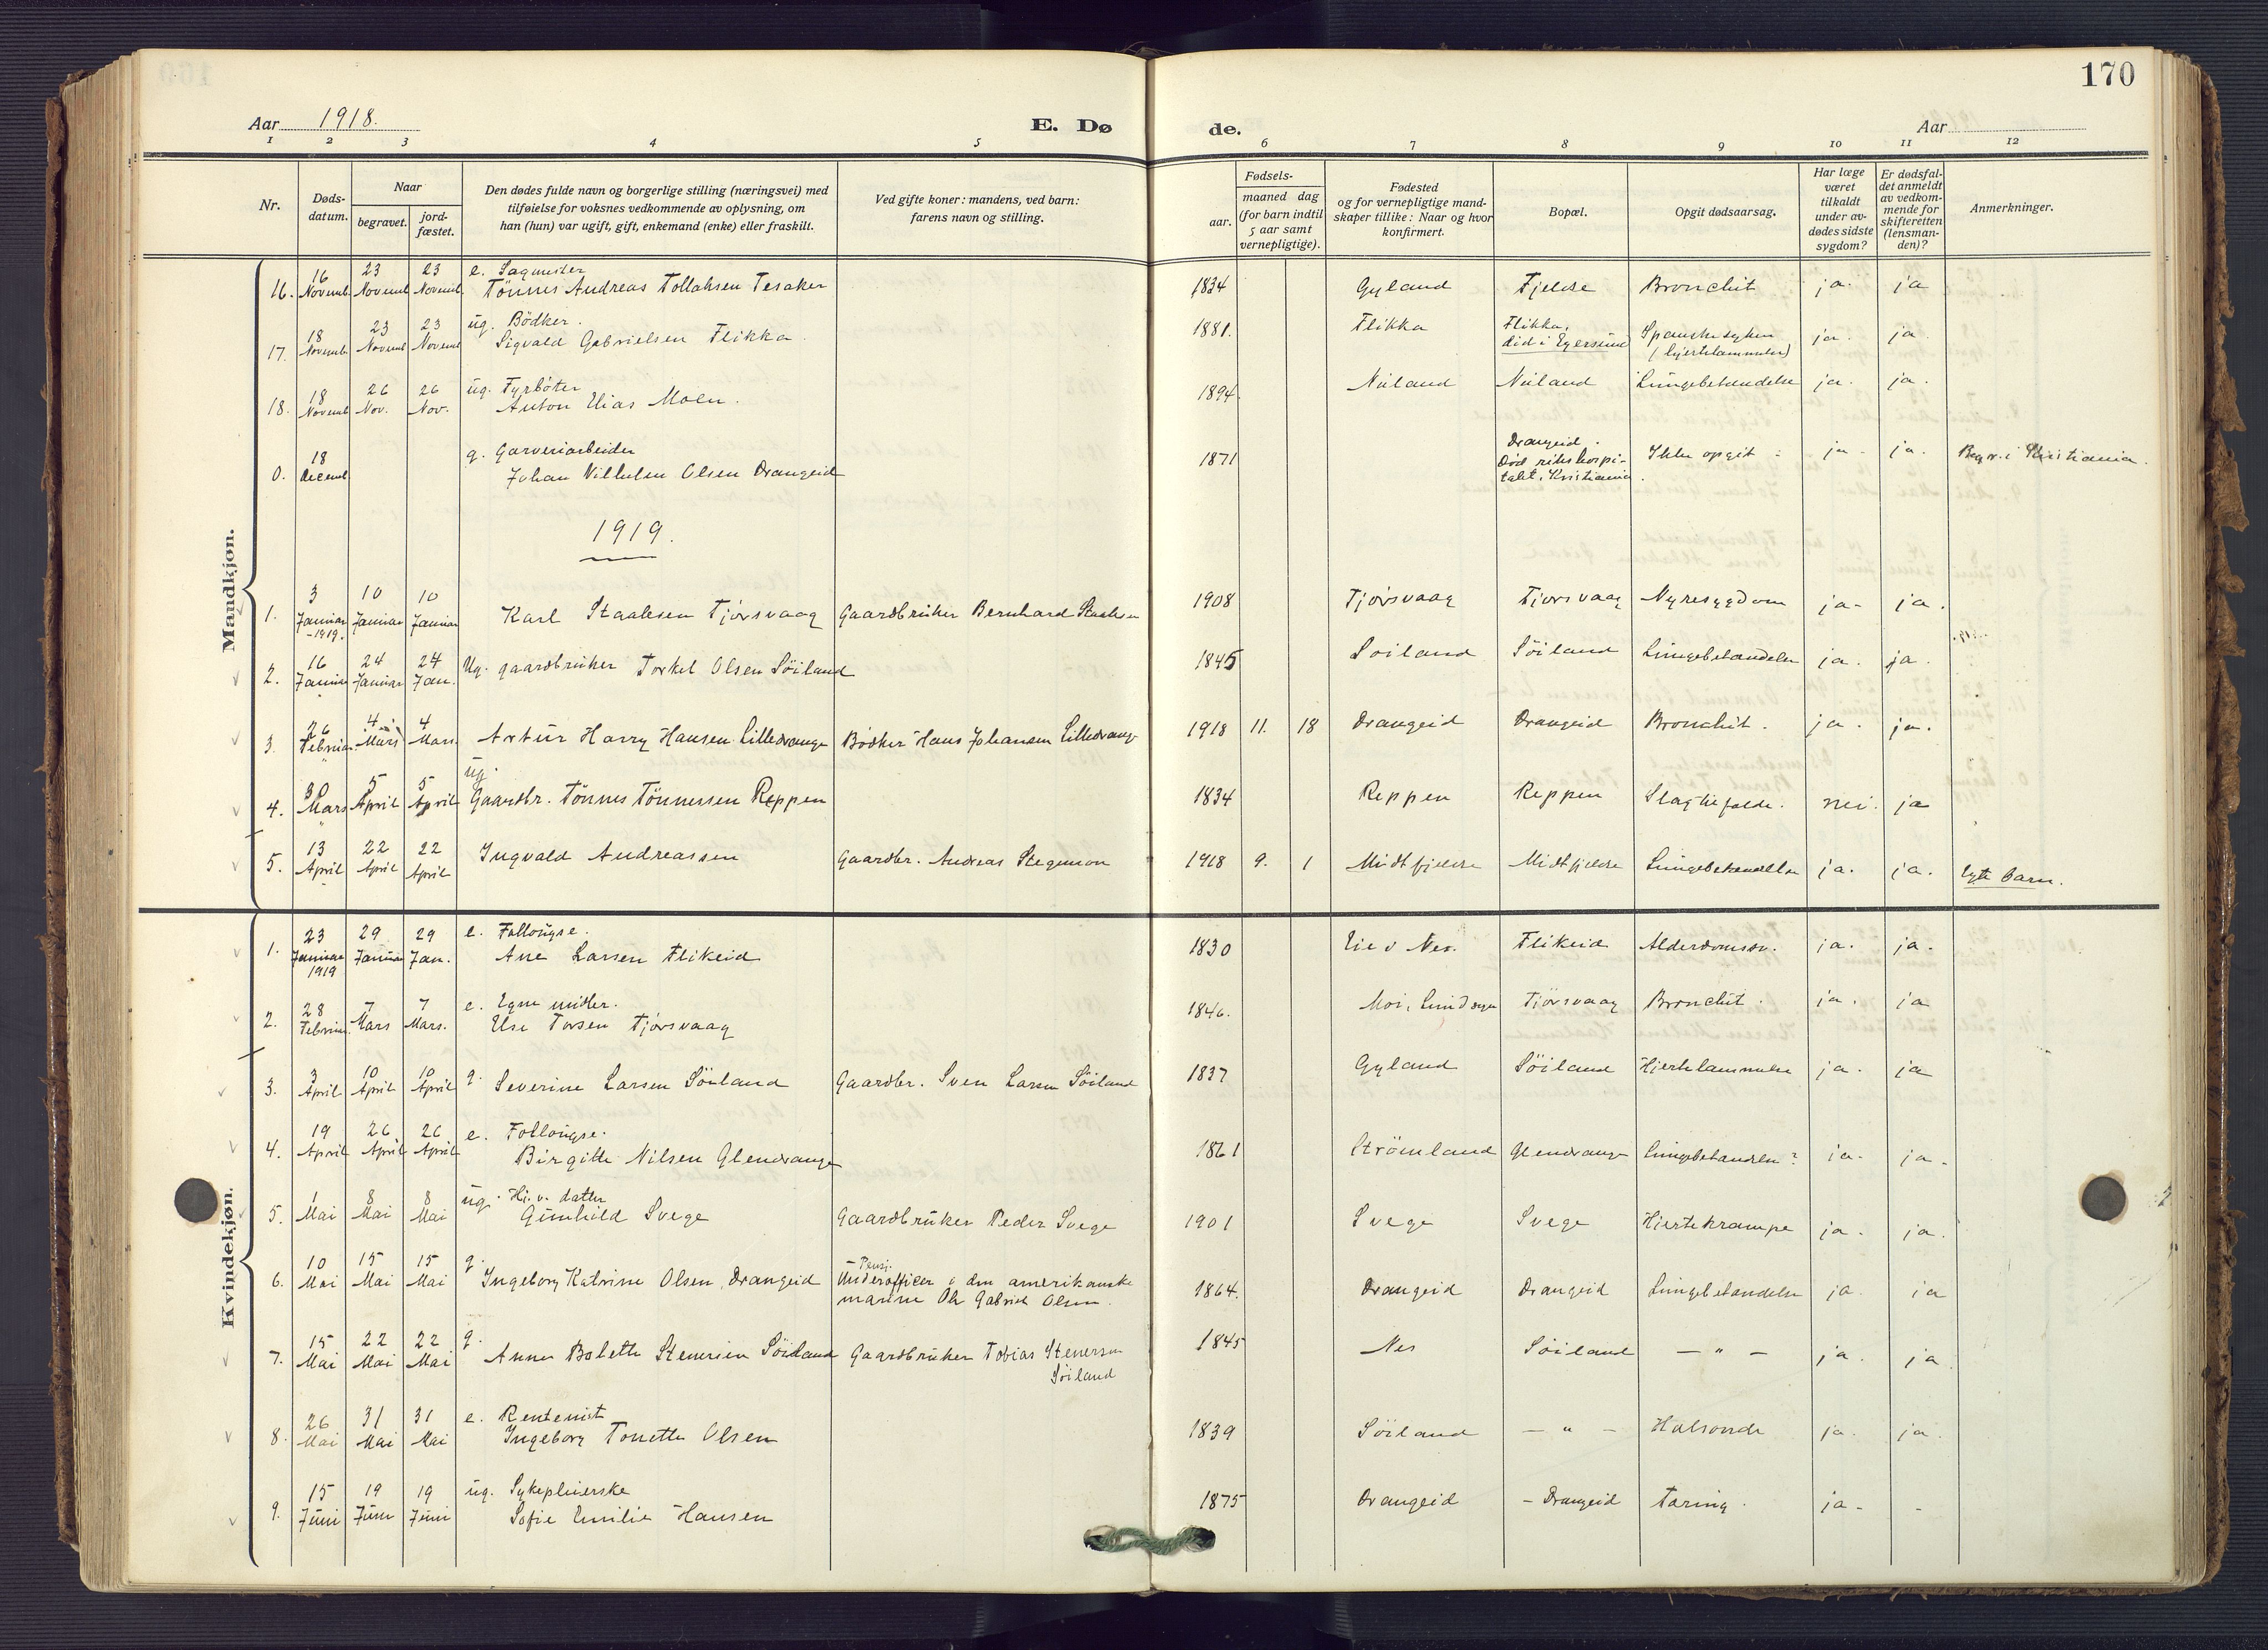 170
Aar 1918.
E. Dø
de.
Aar
1 2 3 4 5 6 7 8 9 10 11 12
Nr.
Døds-
datum.
Naar
begravet.
jord-
fæstet.
Den dødes fulde navn og borgerlige stilling (næringsvei) med
tilføielse for voksnes vedkommende av oplysning, om
han (hun) var ugift, gift, enkemand (enke) eller fraskilt.
Ved gifte koner: mandens, ved barn:
farens navn og stilling.
Fødsels-
aar.
maaned dag
(for barn indtil
5 aar samt
vernepligtige).
Fødested
og for vernepligtige mand-
skaper tillike: Naar og hvor
konfirmert.
Bopæl.
Opgit dødsaarsag.
Har læge
været
tilkaldt
under av-
dødes sidste
sygdom?
Er dødsfal-
det anmeldt
av vedkom-
mende for
skifteretten
(lensman-
den)?
Anmerkninger.
Mandkjøn.
16 23 23 e. Sagmester
16. Novemb Novemb Novemb. Tönnes Andreas Tollaksen Tesaker 1834 Gyland Fjelse Bronchit ja. ja
18 23 23 ug. Bödker. Flikka,
17. Novemb Novemb Novemb Sigvald Gabrielsen Flikka. 1881. Flikka död i Egersund Spanskesyken ja. ja
(hjertelammelse)
18 26 26 ug. Fyrböter
18. Novemb Nov. Nov. Anton Elias Moen. 1894. Nuland Nuland Lungebetændelse ja. ja.
18 g. Garveriarbeider Drangeid.
0. Decemb Johan Vilhelm Olsen Drangeid 1871 Död rikshospi- Ikke opgit ja. ja. Begr. i Kristiania.
talet, Kristiania.
1919.
3 10 10
1. Januar Januar Januar Karl Staalesen Tjörsvaag Gaardbruker Bernhard Staalesen 1908 Tjörsvaag Tjörsvaag Nyresygdom ja. ja.
-1919.
16 24 24
2. Januar Januar Jan. Ug. gaardbruker Torkel Olsen Söiland 1845 Söiland Söiland Lungebetændelse ja. ja.
26 4 4
3. Februar Mars Mars. Artur Harry Hansen Lilledrange Bödker Hans Johansen Lilledrange 1918 11. 18 Drangeid Drangeid Bronchit. ja. ja.
30 5 5 ug.
4. Mars April April Gaardbr. Tönnes Tönnessen Reppen 1834 Reppen Reppen Slagtilfælde. nei. ja
13 22 22
5. April April April Ingvald Andreassen Gaardbr. Andreas Stegemon 1918 9. 1 Midtfjelse Midtfjelse Lungebetændelse ja. ja. Egte barn.
Kvindekjøn.
23 29 29 e. Follougse.
1. Januar Januar Jan. Ane Larsen Flikeid 1830 Lie v Nes. Flikeid Alderdomssv. ja. ja.
1919
28 7 7 e. Egne midler.
2. Februar Mars Mars. Else Torsen Tjörsvaag 1846. Moi, Lund sogn Tjörsvaag Bronchit. ja. ja
3 10 10 g.
3. April April April Severine Larsen Söiland Gaardbr. Sven Larsen Söiland 1837 Gyland Söiland Hjertelammelse ja. ja
19 26 26 e. Follougse.
4. April April April Birgitte Nilsen Glendrange 1861 Strömland Glendrange Lungebetændelse? ja. ja.
1 8 8 ug. Hj. v. datter
5. Mai Mai Mai Gunhild Svege Gaardbruker Peder Svege 1901 Svege Svege Hjertekrampe ja. ja.
10 15 15 g. Pensj.
6. Mai Mai Mai Ingeborg Katrine Olsen, Drangeid Underofficer i den amerikanske 1864. Drangeid Drangeid Lungebetændelse ja. ja
marine Ole Gabriel Olsen.
15 22 22 g.
7. Mai Mai Mai Anne Bolette Stenersen Söiland Gaardbruker Tobias Stenersen 1845 Nes Söiland — " — ja. ja.
Söiland
26 31 31 e. Rentenist
8. Mai Mai Mai Ingeborg Tonette Olsen 1839 Söiland — " — Halsonde ja. ja.
15 19 19 ug. Sykepleierske
9. Juni Juni Juni Sofie Emilie Hansen 1875 Drangeid - Drangeid Tæring. ja. -